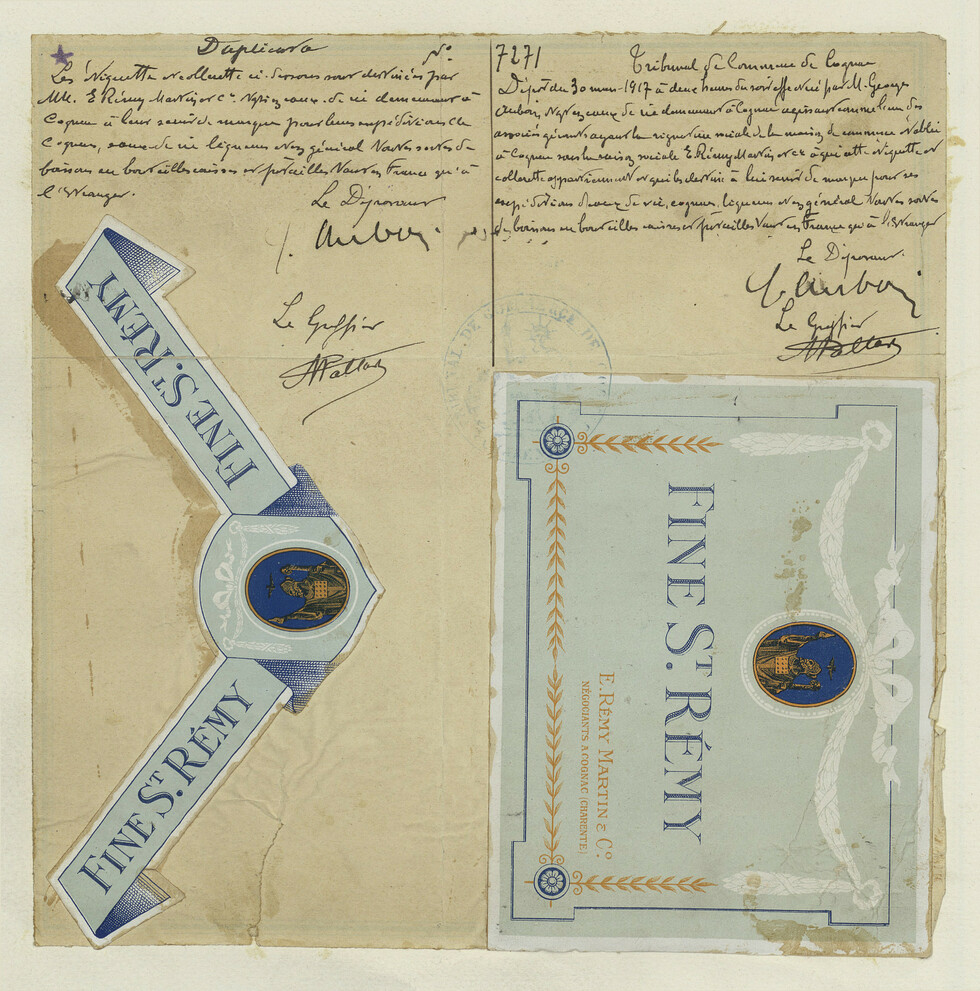 Duplicata
Les étiquette et collerette ci-dessous sont destinées par
MM. E. Rémy Martin et Cie Négts en eaux-de-vie demeurant à
Cognac à leur servir de marque pour leurs expéditions de
Cognac, eaux-de-vie liqueurs et en général toutes sortes de
boissons en bouteilles caisses et futailles tant en France qu'à
l'Etranger.
Le Déposant
Le Greffier
No 7271
Tribunal de Commerce de Cognac
Dépôt du 30 1917 à deux heures du soir effectué par M. Georges
Auboin, Négt en eaux de vie demeurant à Cognac agissant comme l'un des
associés gérants ayant la signature sociale de la maison de commerce établie
à Cognac sous la raison sociale E. Rémy Martin et Cie à qui cette étiquette et
collerette appartiennent et qu'ils destinent à leur servir de marque pour ses
expéditions d'eaux de vie, cognac, liqueurs et en général toutes sortes
de boissons en bouteilles caisses et futailles tant en France qu'à l'Etranger
Le Déposant
Le Greffier
FINE ST. RÉMY
FINE ST. RÉMY
FINE ST. RÉMY
E. RÉMY MARTIN & Co.
NÉGOCIANTS A COGNAC (CHARENTE)